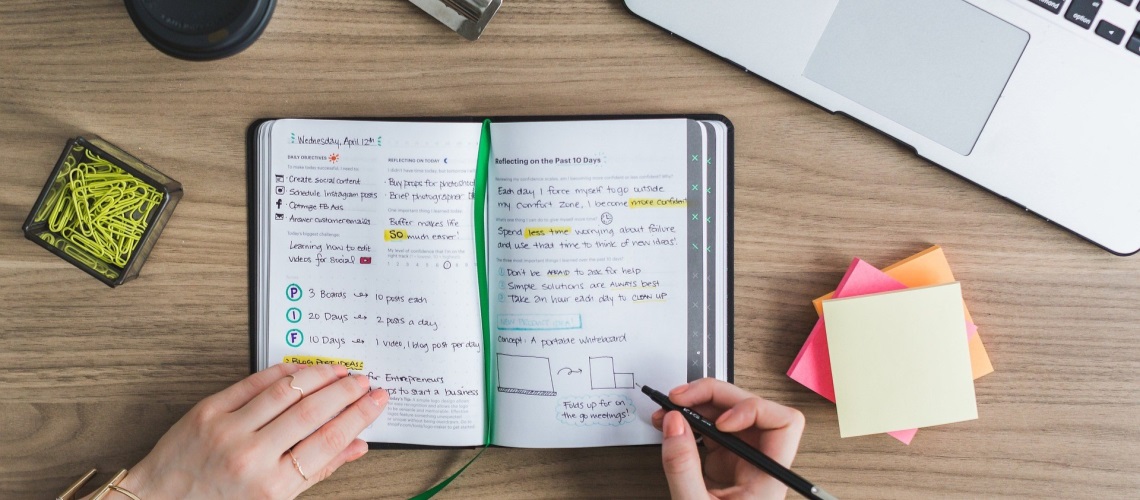 Wednesday, April 12th
DAILY OBJECTIVES
To make today successful, I need to:
Create social content
Schedule Instagram posts
Optimize FB Ads
Answer customer emails
Today's biggest challenge:
Learning how to edit
videos for social
REFLECTING ON TODAY
Buy props for photoshoot
Brief photographer
One important thing I learned today:
Buffer makes life
SO much easier!
P 3 Boards 10 posts each
I 20 Days 2 posts a day
F 10 Days 1 video, 1 blog post per day
> BLOG POST IDEAS
for Entrepreneurs
ps to start a business
Reflecting on the Past 10 Days
Each day I force myself to go outside
my comfort zone, I become more confident
Spend less time worrying about failure
and use that time to think of new ideas!
1 Don't be AFRAID to ask for help
2 Simple solutions are ALWAYS best
3 Take an hour each day to CLEAN UP
NEW PRODUCT IDEA!
Concept: A portable whiteboard
Folds up for on
the go meetings!
command
option